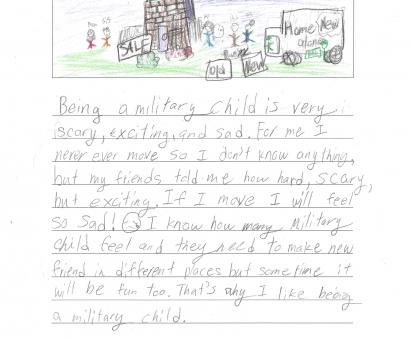 Mom SiS
SALE
Home New
old New
Being a military child is very
scary, exciting, and sad. For me I
never ever move so I don't know anything,
but my friends told me how hard, scary,
but exciting. If I move I will feel
so sad! I know how many military
child feel and they need to make new
friend in different places but some time it
will be fun too. That's why I like being
a military child.